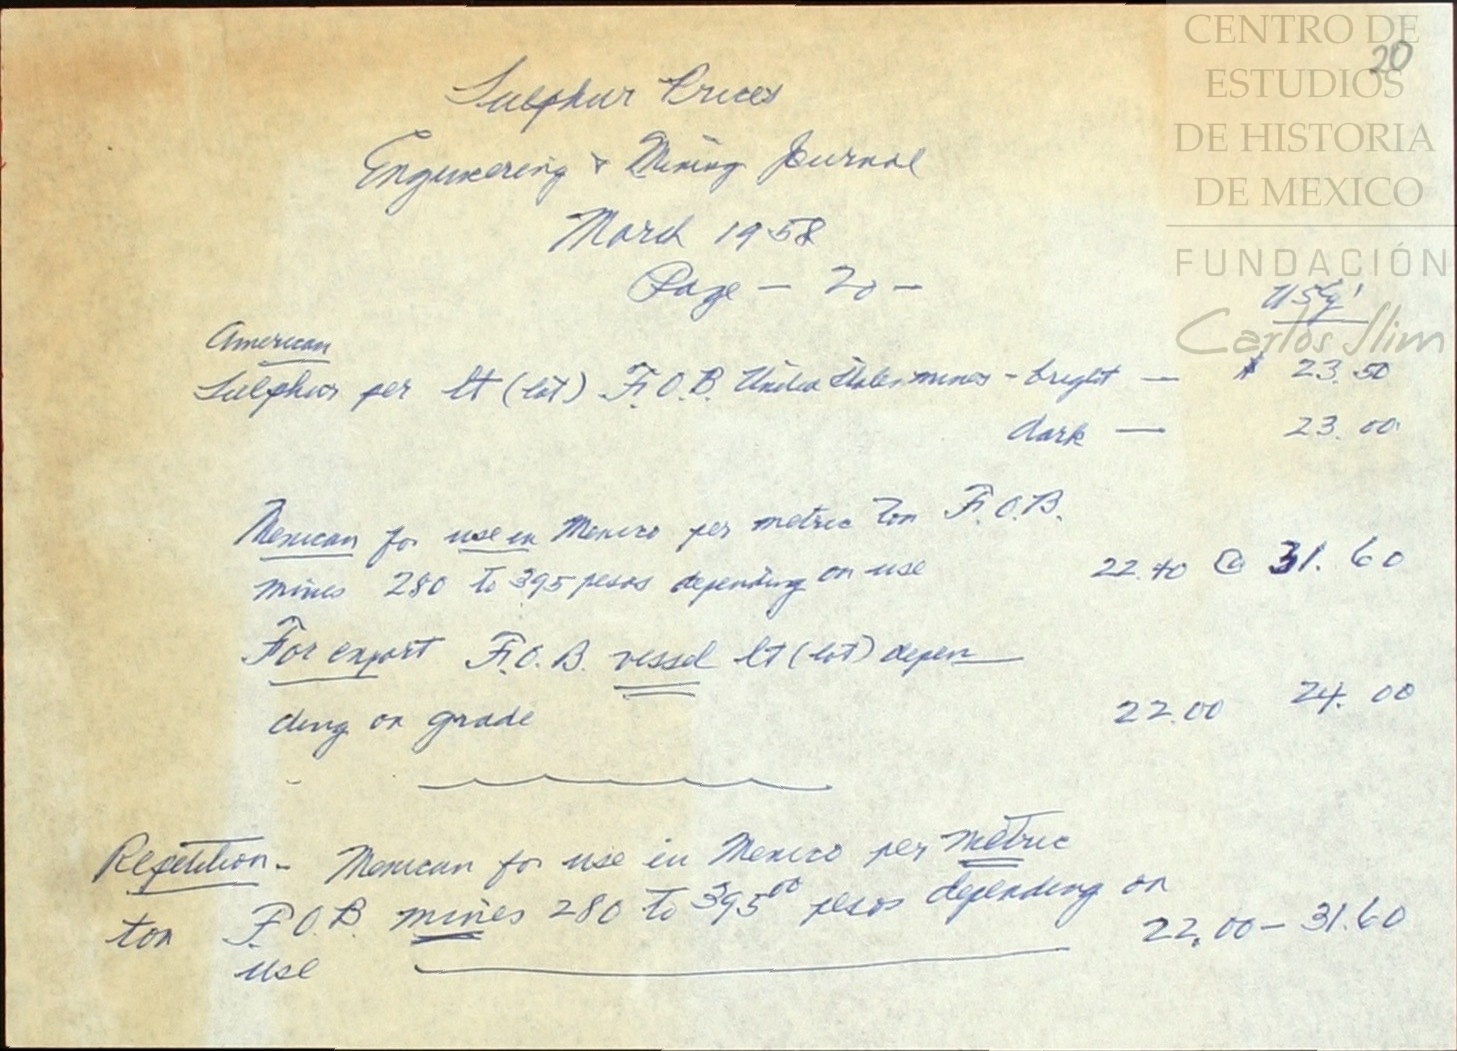 CENTRO DE
ESTUDIOS
DE HISTORIA
DE MEXICO
FUNDACIÓN
Carlos Slim
20
Sulphur Prices
Engineering & Mining Journal
March 1958
Page - 20 -
American
Sulphur per lt (lot) F.O.B. United States mines - bright — $ 23.50
dark — 23.00
Mexican for use in Mexico per metric ton F.O.B.
mines 280 to 395 pesos depending on use 22.40 @ 31.60
For export F.O.B. vessel lt (lot) depen—
ding on grade 22.00 24.00
Repetition - Mexican for use in Mexico per metric
ton F.O.B. mines 280 to 395.00 pesos depending on
use 22.00 - 31.60